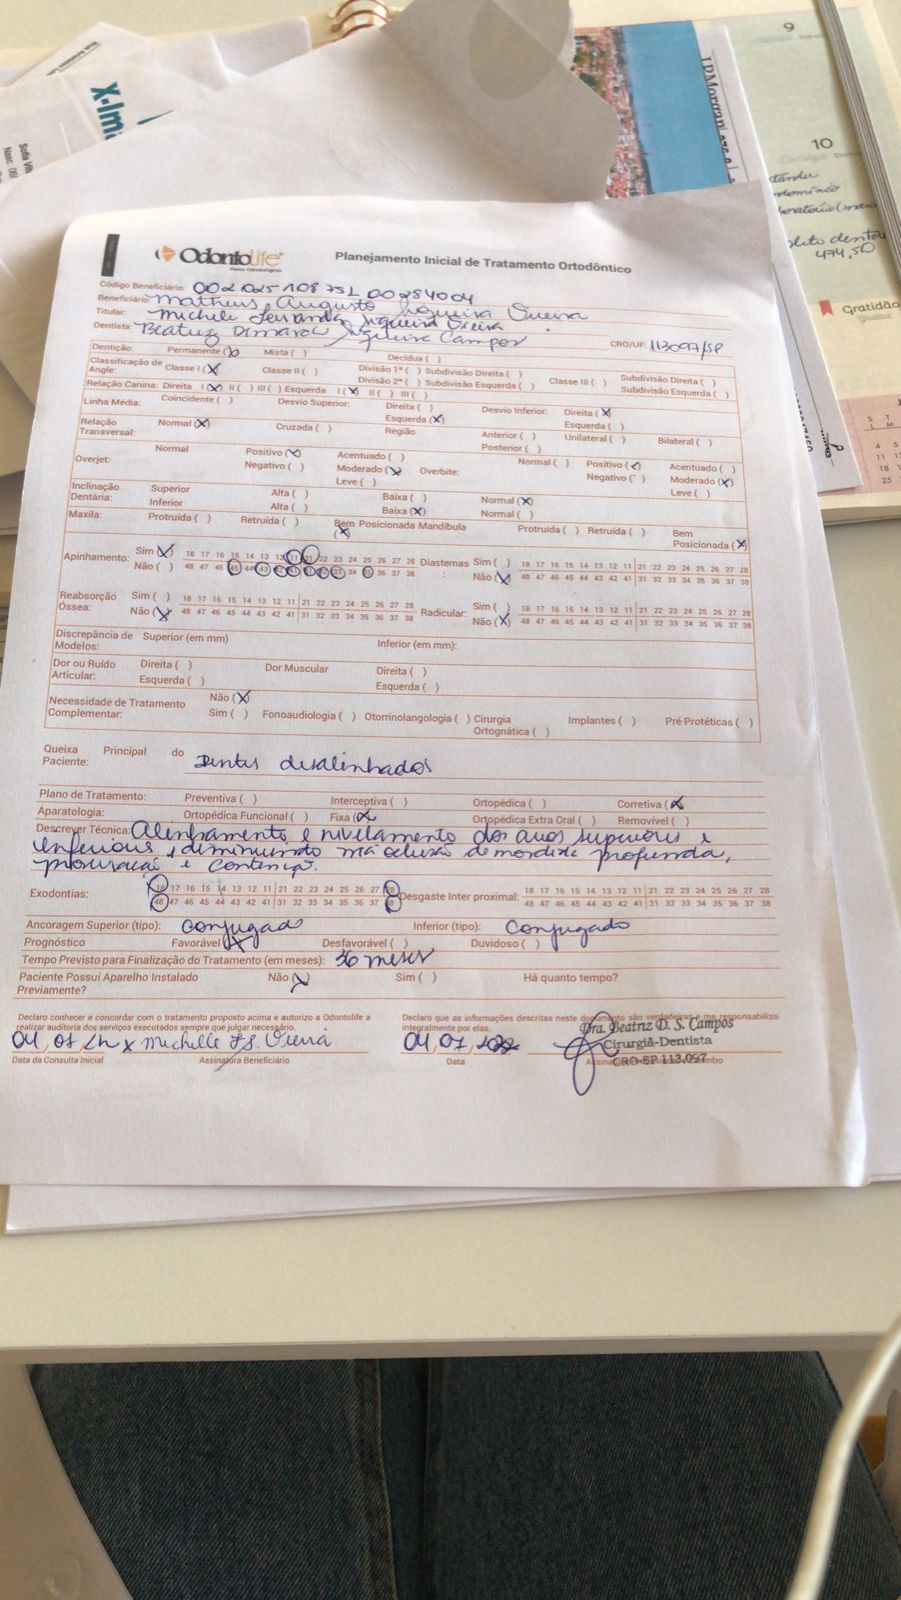 X-Im
Sofia
Nasc.
JPMorgan
9
10
474,50
Gratidão
OdontoLife
Planejamento Inicial de Tratamento Ortodôntico
Código Beneficiário:
Beneficiário: Matheus Augusto Nogueira Vieira
Titular: Michele Fernanda Nogueira Vieira
Dentista: Beatriz Dimarco Siqueira Campos CRO/UF: 113097/SP
Dentição: Permanente (X) Mista ( ) Decídua ( )
Classificação de Angle: Classe I (X) Classe II ( ) Divisão 1ª ( ) Subdivisão Direita ( ) Divisão 2ª ( ) Subdivisão Esquerda ( ) Classe III ( ) Subdivisão Direita ( ) Subdivisão Esquerda ( )
Relação Canina: Direita I (X) II ( ) III ( ) Esquerda I (X) II ( ) III ( )
Linha Média: Coincidente ( ) Desvio Superior: Direita ( ) Esquerda (X) Desvio Inferior: Direita (X) Esquerda ( )
Relação Transversal: Normal (X) Cruzada ( ) Região Anterior ( ) Posterior ( ) Unilateral ( ) Bilateral ( )
Overjet: Normal Positivo (X) Negativo ( ) Acentuado ( ) Moderado (X) Leve ( ) Overbite: Normal ( ) Positivo (X) Negativo ( ) Acentuado ( ) Moderado (X) Leve ( )
Inclinação Dentária: Superior Alta ( ) Baixa ( ) Normal (X)
Inferior Alta ( ) Baixa (X) Normal ( )
Maxila: Protruída ( ) Retruída ( ) Bem Posicionada (X) Mandíbula Protruída ( ) Retruída ( ) Bem Posicionada (X)
Apinhamento: Sim (X) 18 17 16 15 14 13 12 11 21 22 23 24 25 26 27 28 Diastemas: Sim ( ) 18 17 16 15 14 13 12 11 21 22 23 24 25 26 27 28
Não ( ) 48 47 46 45 44 43 42 41 31 32 33 34 35 36 37 38 Não (X) 48 47 46 45 44 43 42 41 31 32 33 34 35 36 37 38
Reabsorção Óssea: Sim ( ) 18 17 16 15 14 13 12 11 21 22 23 24 25 26 27 28 Radicular: Sim ( ) 18 17 16 15 14 13 12 11 21 22 23 24 25 26 27 28
Não (X) 48 47 46 45 44 43 42 41 31 32 33 34 35 36 37 38 Não (X) 48 47 46 45 44 43 42 41 31 32 33 34 35 36 37 38
Discrepância de Modelos: Superior (em mm) Inferior (em mm):
Dor ou Ruído Articular: Direita ( ) Esquerda ( ) Dor Muscular Direita ( ) Esquerda ( )
Necessidade de Tratamento Complementar: Não (X)
Sim ( ) Fonoaudiologia ( ) Otorrinolangologia ( ) Cirurgia Ortognática ( ) Implantes ( ) Pré Protéticas ( )
Queixa Principal do Paciente: Dentes desalinhados
Plano de Tratamento: Preventiva ( ) Interceptiva ( ) Ortopédica ( ) Corretiva (X)
Aparatologia: Ortopédica Funcional ( ) Fixa (X) Ortopédica Extra Oral ( ) Removível ( )
Descrever Técnica: Alinhamento e nivelamento dos arcos superiores e
inferiores, diminuindo má oclusão de mordida profunda,
e contenção.
Exodontias: 18 17 16 15 14 13 12 11 21 22 23 24 25 26 27 28 Desgaste Inter proximal: 18 17 16 15 14 13 12 11 21 22 23 24 25 26 27 28
48 47 46 45 44 43 42 41 31 32 33 34 35 36 37 38 48 47 46 45 44 43 42 41 31 32 33 34 35 36 37 38
Ancoragem Superior (tipo): conjugado Inferior (tipo): Conjugado
Prognóstico Favorável (X) Desfavorável ( ) Duvidoso ( )
Tempo Previsto para Finalização do Tratamento (em meses): 36 meses
Paciente Possui Aparelho Instalado Previamente? Não (X) Sim ( ) Há quanto tempo?
Declaro conhecer e concordar com o tratamento proposto acima e autorizo a Odontolife a realizar auditoria dos serviços executados sempre que julgar necessário.
Declaro que as informações descritas neste documento são verdadeiras e me responsabilizo integralmente por elas.
Dra. Beatriz D. S. Campos
Cirurgiã-Dentista
CRO-SP 113.097
Michelle F S. Vieira
04,07,2022
Data da Consulta Inicial Assinatura Beneficiário Data